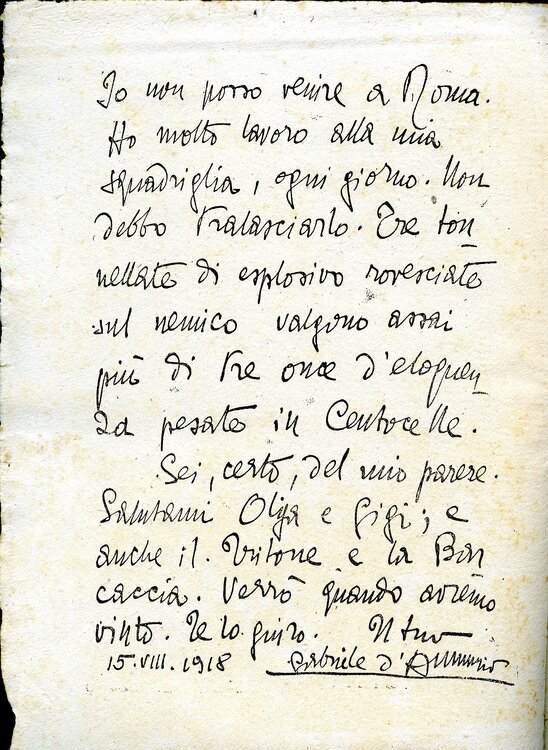 Io non posso venire a Roma.
Ho molto lavoro alla mia
squadriglia, ogni giorno. Non
debbo tralasciarlo. Tre ton
nellate di esplosivo rovesciate
sul nemico valgono assai
più di tre once d'eloquen
za pesate in Centocelle.
Sei, certo, del mio parere.
Salutami Olga e Gigi; e
anche il Tritone e la Bar
caccia. Verrò quando avremo
vinto. Te lo giuro. Il tuo
15.VIII.1918 Gabriele d'Annunzio